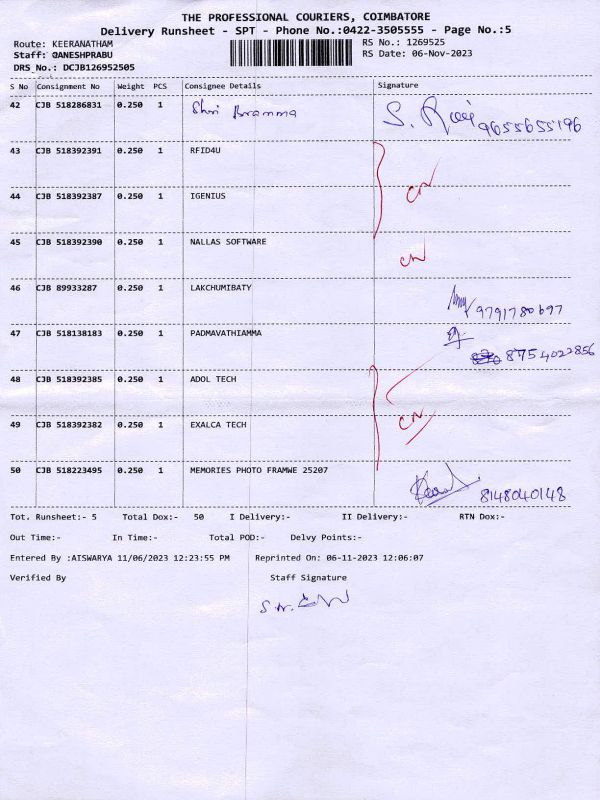 THE PROFESSIONAL COURIERS, COIMBATORE
Delivery Runsheet - SPT - Phone No.:0422-3505555 - Page No.:5
Route: KEERANATHAM RS No.: 1269525
Staff: GANESHPRABU RS Date: 06-Nov-2023
DRS_No.: DCJB126952505
S No Consignment No Weight PCS Consignee Details Signature
42 CJB 518286831 0.250 1 Shri Bramma S. Ravi 9655655196
43 CJB 518392391 0.250 1 RFID4U
44 CJB 518392387 0.250 1 IGENIUS CN
45 CJB 518392390 0.250 1 NALLAS SOFTWARE CN
46 CJB 89933287 0.250 1 LAKCHUMIBATY 9791780697
47 CJB 518138183 0.250 1 PADMAVATHIAMMA 8754022856
48 CJB 518392385 0.250 1 ADOL TECH
49 CJB 518392382 0.250 1 EXALCA TECH CN
50 CJB 518223495 0.250 1 MEMORIES PHOTO FRAMWE 25207 8148040148
Tot. Runsheet:- 5 Total Dox:- 50 I Delivery:- II Delivery:- RTN Dox:-
Out Time:- In Time:- Total POD:- Delvy Points:-
Entered By :AISWARYA 11/06/2023 12:23:55 PM Reprinted On: 06-11-2023 12:06:07
Verified By Staff Signature